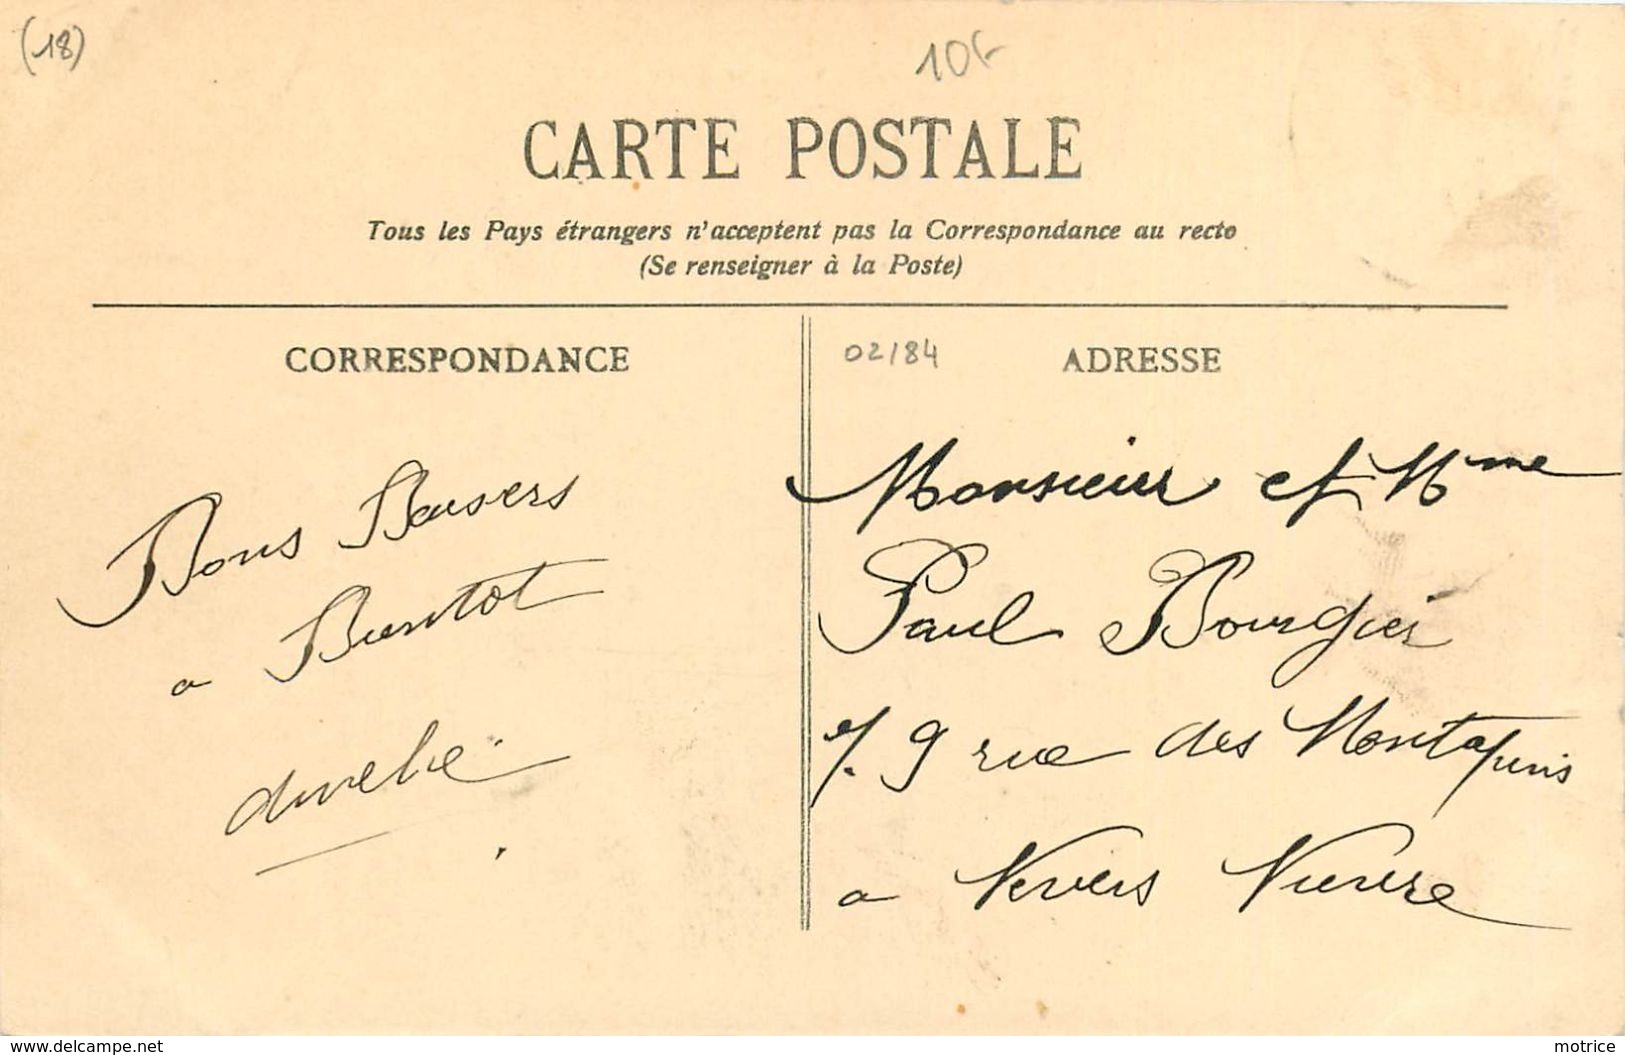 (18)
10F
CARTE POSTALE
Tous les Pays étrangers n'acceptent pas la Correspondance au recto
(Se renseigner à la Poste)
CORRESPONDANCE
Bons Baisers
a Bientot
Amelie
02/84
ADRESSE
Monsieur et Mme
Paul Bourgier
9 rue des Montapins
a Nevers Nievre
www.delcampe.net
motrice